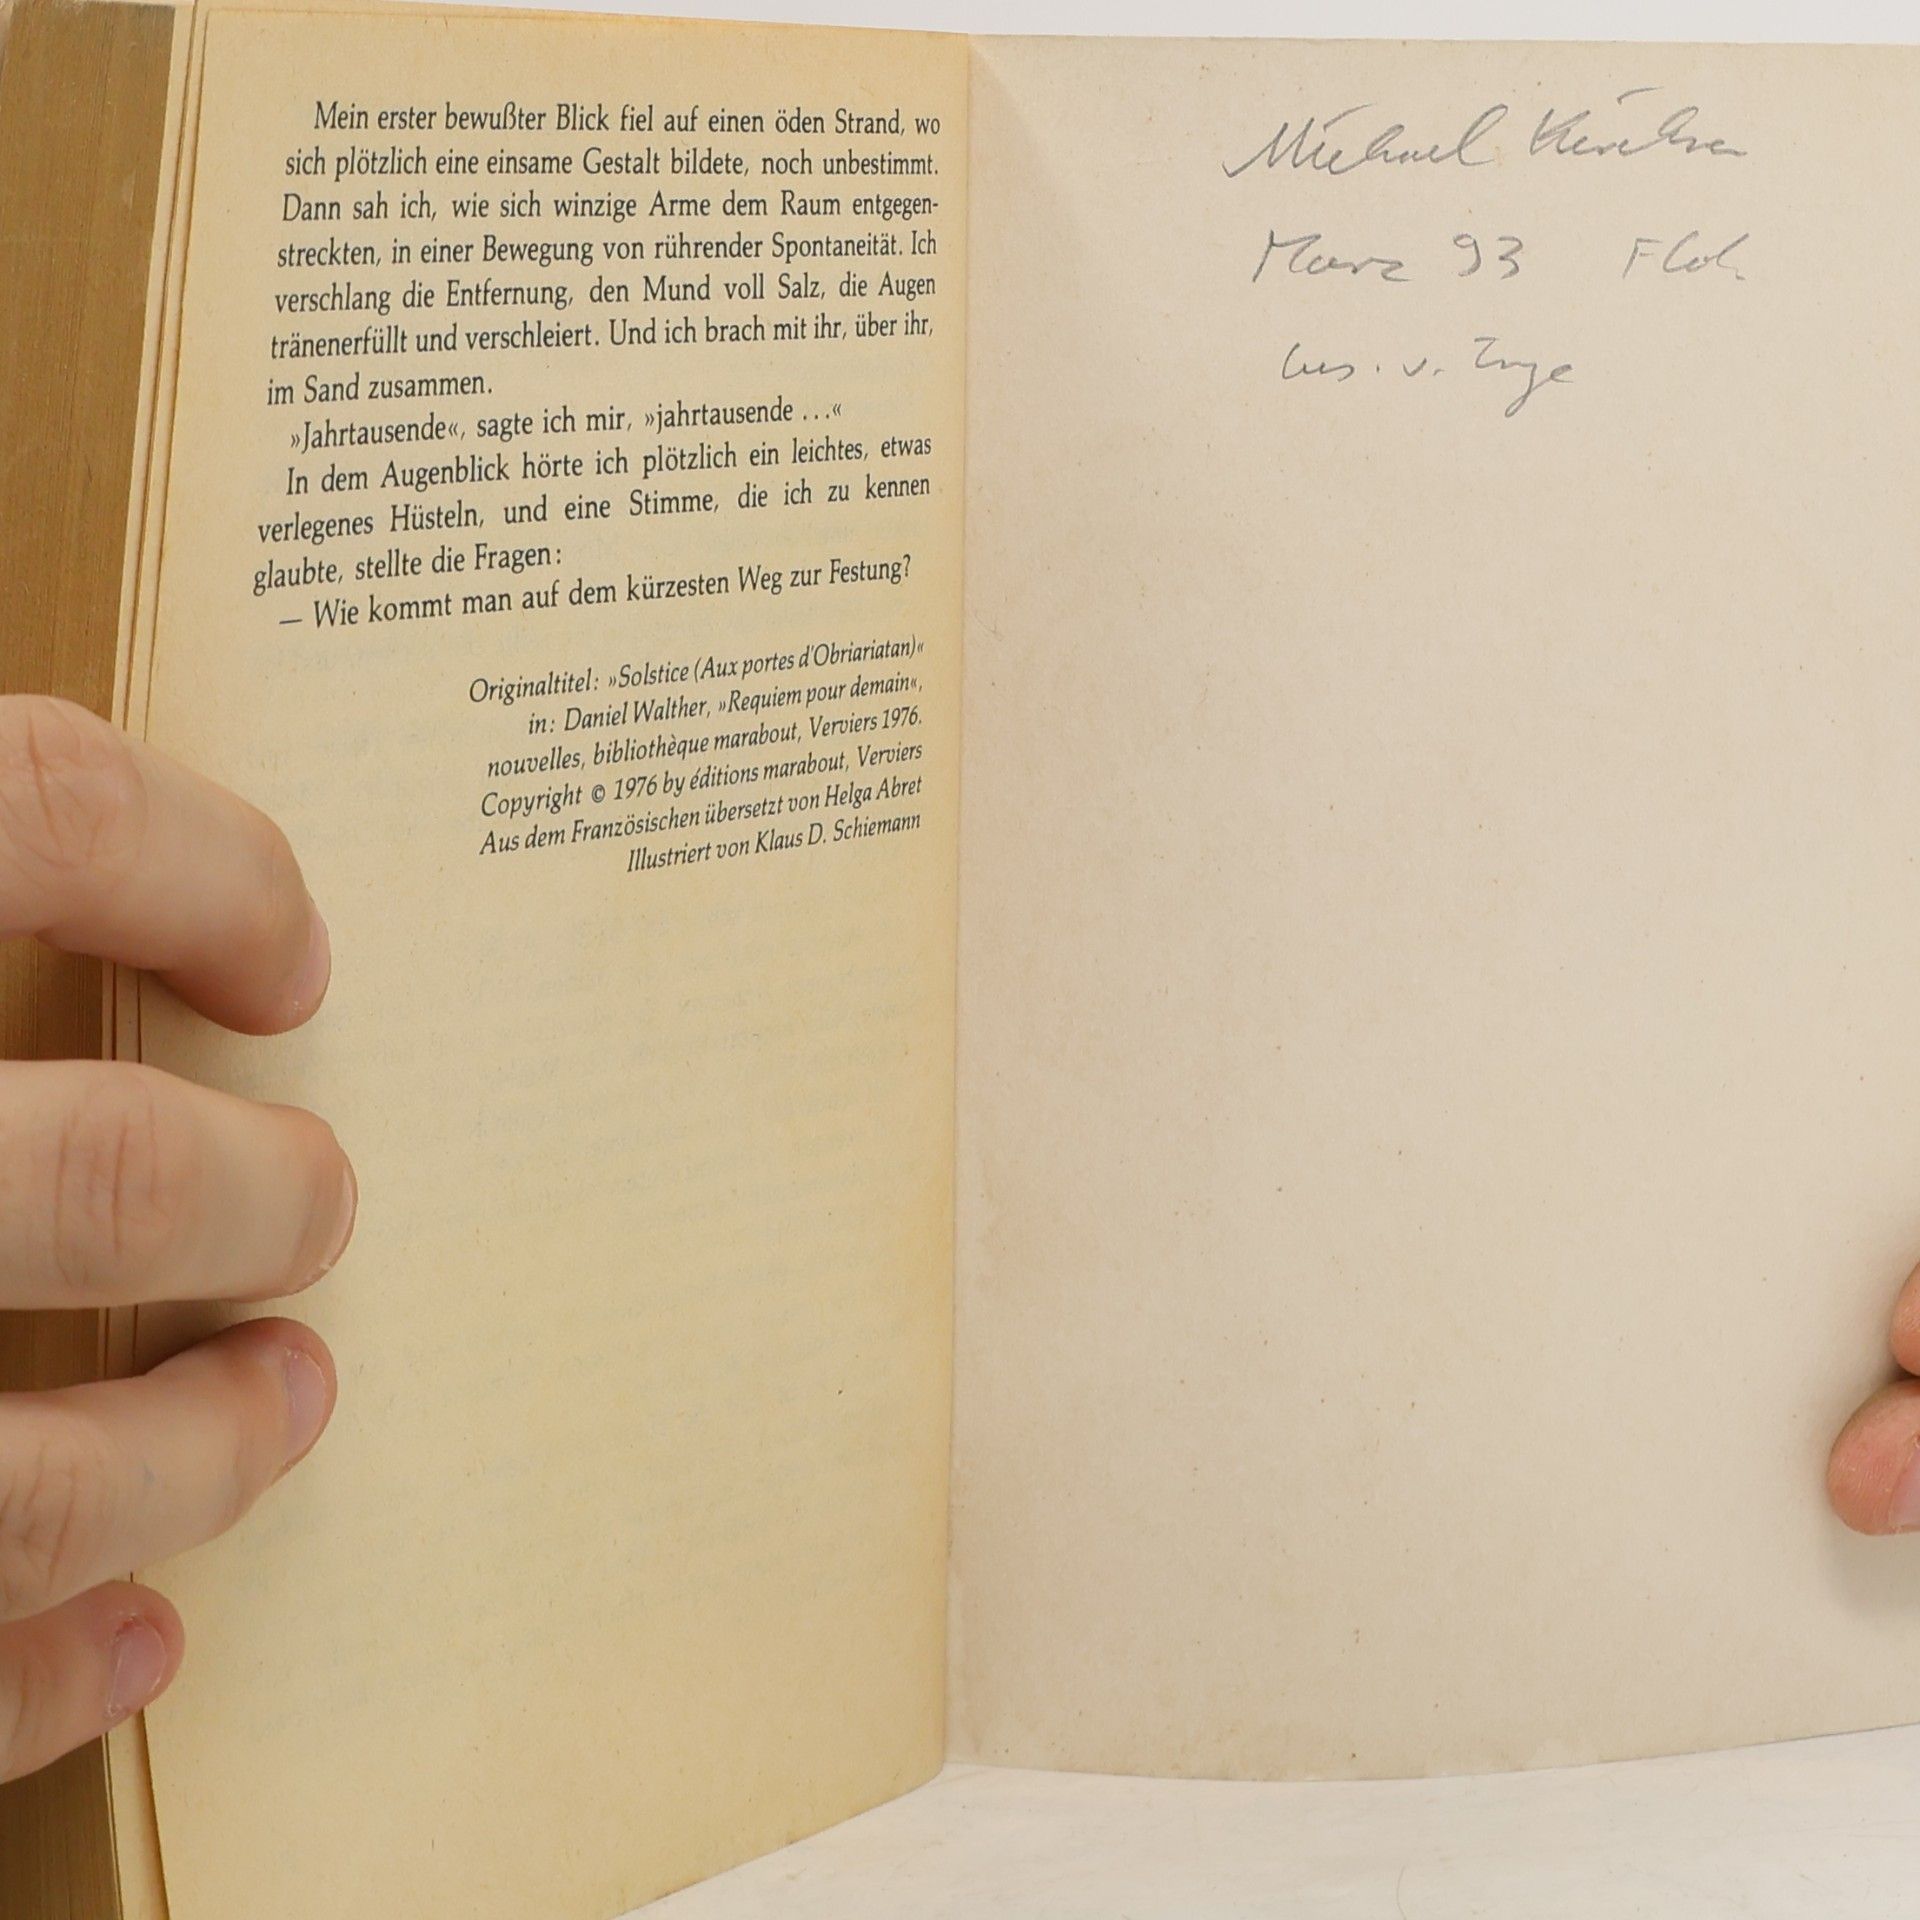 Mein erster bewußter Blick fiel auf einen öden Strand, wo
sich plötzlich eine einsame Gestalt bildete, noch unbestimmt.
Dann sah ich, wie sich winzige Arme dem Raum entgegen-
streckten, in einer Bewegung von rührender Spontaneität. Ich
verschlang die Entfernung, den Mund voll Salz, die Augen
tränenerfüllt und verschleiert. Und ich brach mit ihr, über ihr,
im Sand zusammen.
»Jahrtausende«, sagte ich mir, »jahrtausende ...«
In dem Augenblick hörte ich plötzlich ein leichtes, etwas
verlegenes Hüsteln, und eine Stimme, die ich zu kennen
glaubte, stellte die Fragen:
— Wie kommt man auf dem kürzesten Weg zur Festung?
Originaltitel: »Solstice (Aux portes d'Obriariatan)«
in: Daniel Walther, »Requiem pour demain«,
nouvelles, bibliothèque marabout, Verviers 1976.
Copyright © 1976 by éditions marabout, Verviers
Aus dem Französischen übersetzt von Helga Abret
Illustriert von Klaus D. Schiemann
Michael
März 93
v. Inge